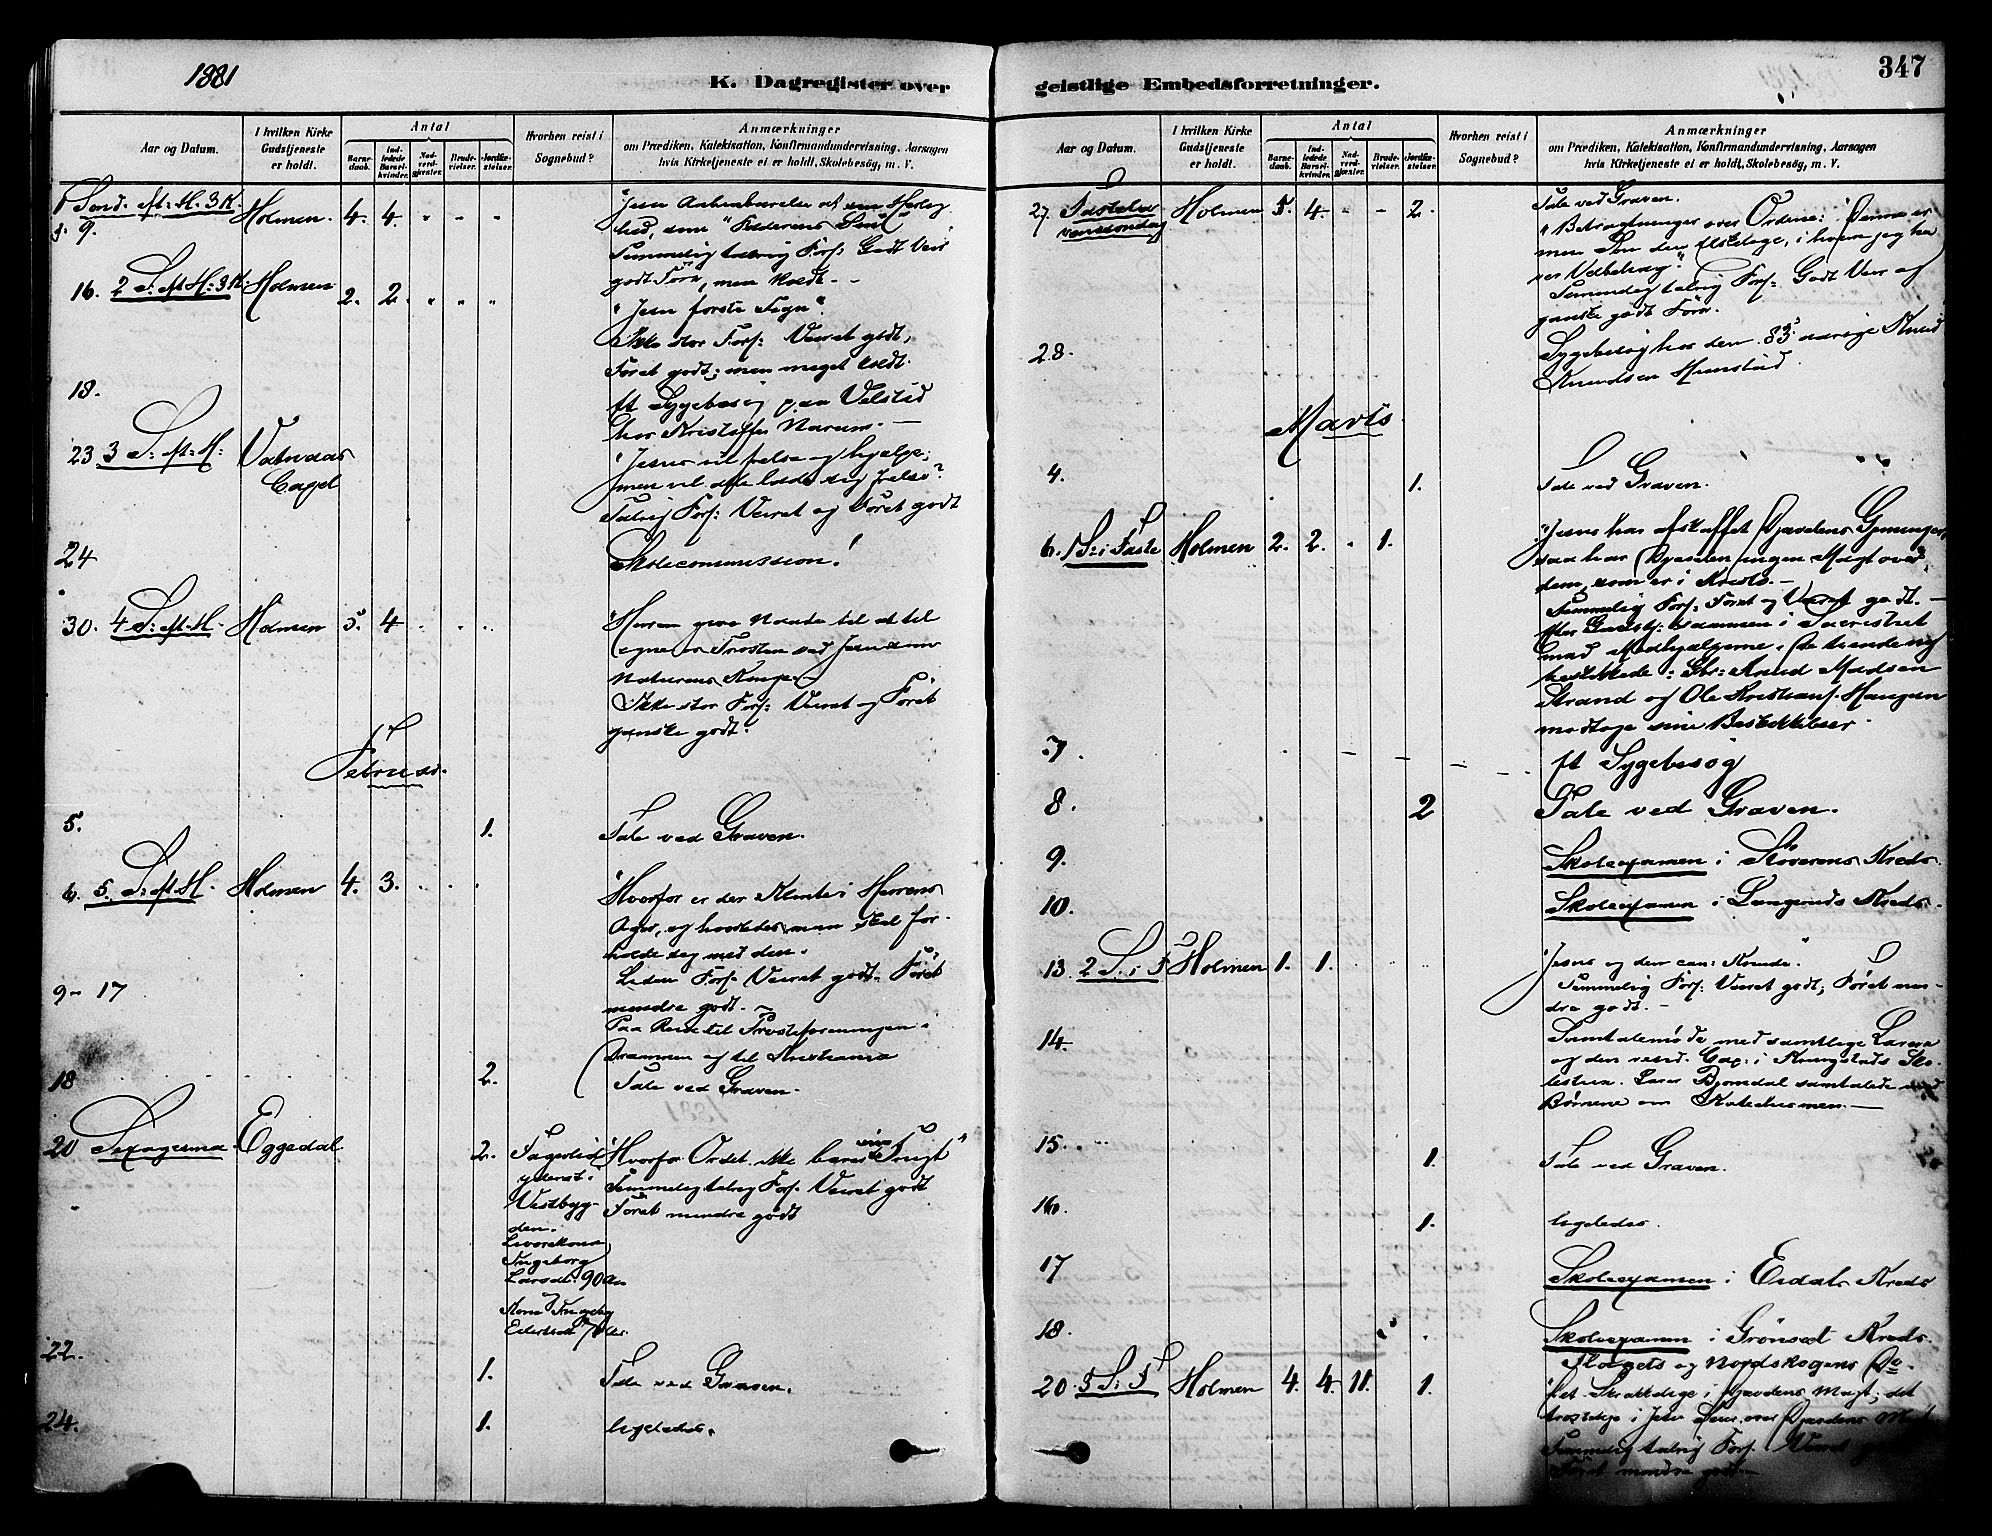 1881
K. Dagregister over
Aar og Datum.
I hvilken Kirke Gudstjeneste er holdt.
Antal
Barnedaab.
Indledede Barselkvinder.
Nadverdgjæster.
Brudevielser.
Jordfæstelser.
Hvorhen reist i Sognebud?
Anmærkninger
om Prædiken, Katekisation, Konfirmandundervisning, Aarsagen
hvis Kirketjeneste ei er holdt, Skolebesøg, m. V.
1 Sønd. eft. H. 3 K.
9. Holmen. 4. 4. " " "
hed, som "Faderens Søn"
Temmelig talrig Fors: Godt Veir
godt Føre, men koldt. -
16. 2 S. eft. H. 3 K. Holmen 2. 2. " " "
"Jesu første Tegn".
Ikke stor Fors: Veiret godt,
Føret godt; men meget koldt.
18.
et Sygebesøg paa Velstad
hos Kristoffer Narum. -
23 3 S. eft. H. Vatnaas Capel
"Jesus vil frelse og hjælpe;
men vil du lade dig frelse?
Talrig Fors: Veiret og Føret godt
24
Skolecommission!
30. 4 S. eft. H. Holmen 5. 4.
Ikke stor Fors: Veiret og Føret
ganske godt.
Februar.
5. 1. Tale ved Graven.
6. 5. S. eft. H. Holmen 4. 3.
"Hvorfor er der Klinte i Herrens
Ager, og hvorledes man skal for-
holde sig med den.
Liden Fors. Veiret godt. Føret
mindre godt. -
9 - 17
Paa Reise til Præsteforeningen i
Drammen og til Kristiania
18 2. Tale ved Graven.
20 Sexagesima Eggedal 2.
Vestbyg-
den.
Ingeborg
Larsd. 90 Aar
"Hvorfor Ordet ikke bærer sin Frugt"
Temmelig talrig Fors. Veiret godt
Føret mindre godt
22. 1. Tale ved Graven.
24. 1. ligeledes.
geistlige Embedsforretninger.
347
Aar og Datum.
I hvilken Kirke Gudstjeneste er holdt.
Antal
Barnedaab.
Indledede Barselkvinder.
Nadverdgjæster.
Brudevielser.
Jordfæstelser.
Hvorhen reist i Sognebud?
Anmærkninger
om Prædiken, Katekisation, Konfirmandundervisning, Aarsagen
hvis Kirketjeneste ei er holdt, Skolebesøg, m. V.
27. Fastelavnssøndag Holmen 5. 4. - - 2.
Tale ved Graven.
"Betragtninger over Ordene: "Denne er
min Søn den elskelige, i hvem jeg ha-
ver Velbehag".
Temmelig talrig Fors: Godt Veir og
ganske godt Føre.
28.
Sygebesøg hos den 83 aarige Knud
Knudsen Hunstad.
Marts
4. 1. Tale ved Graven.
6. 1 S. i Faste Holmen 2. 2. " 1.
"Jesus har afskaffet Djævelens Gjerninger,
saa har Djævelen ingen Magt over
dem, som er i Kristo. -
Temmelig Fors: Føret og Veiret godt. -
Efter Gudstj: Sammen i Sacristiet
med Medhjælperne. De tvende ny
beskikkede: Gbr: Knud Madsen
Strand og Ole Kristians. Haugen
modtoge sine Beskikkelser.
7. et Sygebesøg
8. 2 Tale ved Graven.
9. Skoleexamen i Støverens Kreds.
10. Skoleexamen i Langeruds Kreds.
13 2 S. i F Holmen 1. 1.
"Jesus og den can: Kvinde".
Temmelig Fors: Veiret godt; Føret min-
dre godt. -
14.
Samtalemøde med samtlige Lærere
og den resid. Cap: i Kringstads Sko-
lestue. Lærer Bjørndal samtalede med
Børnene om Katechismen. -
15. 1. Tale ved Graven.
16. 1. ligeledes.
17 Skoleexamen i Eidals Kreds
18. Skoleexamen i Grønset Kreds.
og Nordskogens Do.
20. 3 S. i F Holmen 4. 4. 11. 1.
"Det Skrækkelige i Djævelens Magt; det
trøstelige i Jesu Seier over Djævelens
Temmelig talrig Fors. Veiret
Føret mindre godt. -